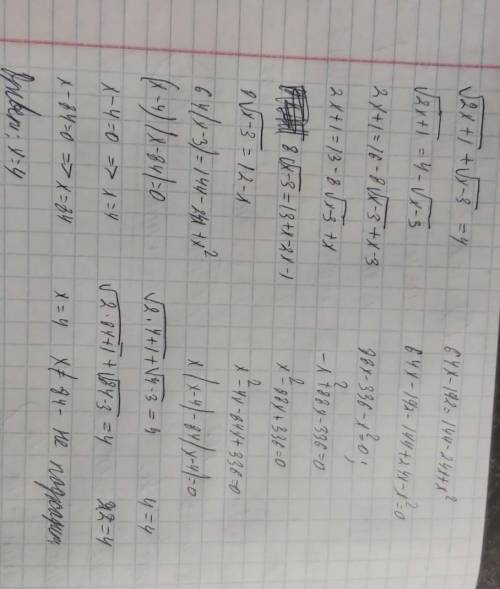 √2x+1 + √x-3 = 4
√2x+1 = 4-√x-3
2x+1=16-8√x-3+x-3
2x+1=13-8√x-3+x
8√x-3=13+x-2x-1
8√x-3=12-x
64(x-3)=144-24x+x²
(x-4)(x-84)=0
x-4=0 => x=4
x-84=0 => x=84
x=4
64x-192=144-24x+x²
64x-192-144+24x-x²=0
88x-336-x²=0;
-x²+88x-336=0
x²-88x+336=0
x²-4x-84x+336=0
x(x-4)-84(x-4)=0
√2·4+1+√4-3=4
4=4
√2·84+1+√84-3=4
22=4
x=4
x≠84- не